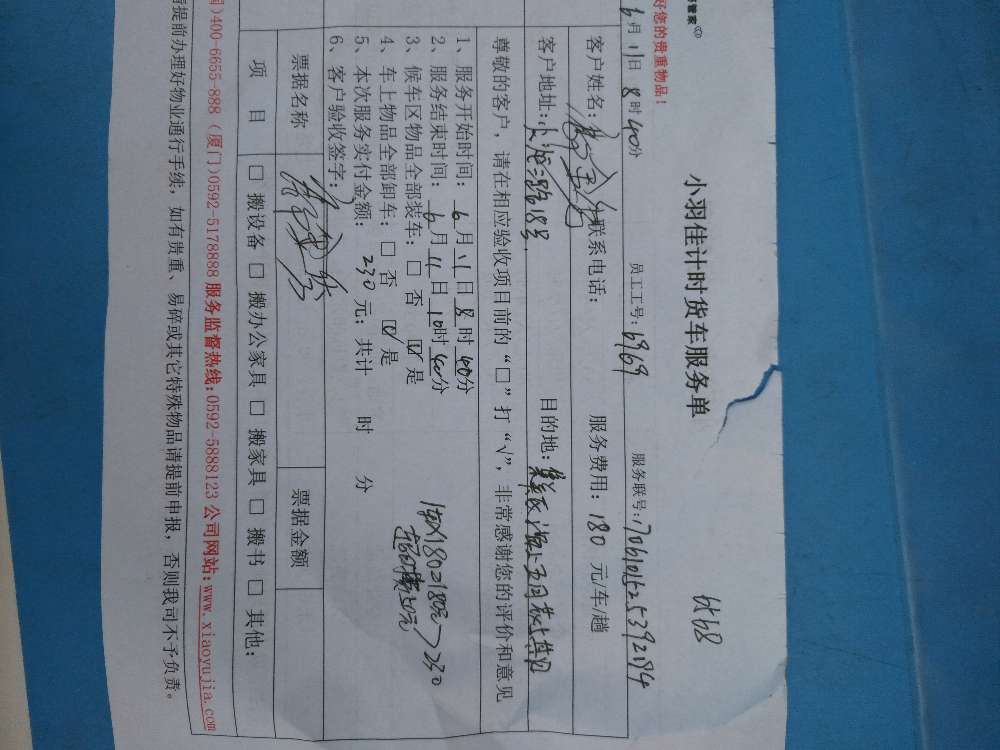 管家
好您的贵重物品！
小羽佳计时货车服务单
6168
6月11日8时40分 员工工号：6969 服务联号：
客户姓名： 联系电话： 服务费用：180元/车/趟
客户地址： 618号 目的地：集美区
尊敬的客户，请在相应验收项目前的“□”打“√”，非常感谢您的评价和意见
1、服务开始时间：6月11日8时40分
2、服务结束时间：6月11日10时40分
3、候车区物品全部装车：□ 否 ☑ 是
4、车上物品全部卸车：□ 否 ☑ 是
5、本次服务实付金额：230元；共计 时 分
6、客户验收签字：
230
票据名称 票据金额
项目 □ 搬设备 □ 搬办公家具 □ 搬家具 □ 搬书 □ 其他：
)400-6655-888（厦门)0592-5178888 服务监督热线:0592-5888123 公司网站:www.xiaoyujia.com
提前办理好物业通行手续，如有贵重、易碎或其它特殊物品请提前申报，否则我司不予负责。